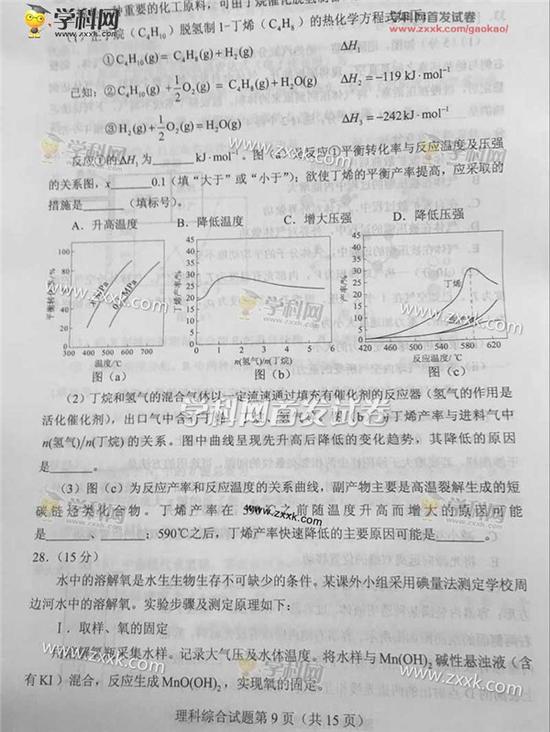 种重要的化工原料，可由丁烷催化脱氢制备
学科网首发试卷
www.zxxk.com/gaokao/
(C₄H₁₀) 脱氢制 1-丁烯 (C₄H₈) 的热化学方程式如下：
①C₄H₁₀(g) = C₄H₈(g)+H₂(g) ΔH₁
已知：②C₄H₁₀(g)+1/2O₂(g) = C₄H₈(g)+H₂O(g) ΔH₂ = −119 kJ·mol⁻¹
③H₂(g)+1/2O₂(g)=H₂O(g) ΔH₃ = −242 kJ·mol⁻¹
反应①的ΔH₁为______ kJ·mol⁻¹。图（a）是反应①平衡转化率与反应温度及压强
的关系图，x______0.1（填“大于”或“小于”）；欲使丁烯的平衡产率提高，应采取的
措施是______（填标号）。
A．升高温度 B．降低温度 C．增大压强 D．降低压强
100
80
60
40
20
0
300 400 500 600 700
温度/℃
图（a）
丁烯产率/%
45
40
35
30
25
20
15
10
5
0
0 1 2 3 4 5 6
n(氢气)/n(丁烷)
图（b）
产率/%
45
40
35
30
25
20
15
10
5
0
丁烯
420 460 500 540 580 620
反应温度/℃
图（c）
（2）丁烷和氢气的混合气体以一定流速通过填充有催化剂的反应器（氢气的作用是
活化催化剂），出口气中含有丁烯、 丁烯产率与进料气中
n(氢气)/n(丁烷) 的关系。图中曲线呈现先升高后降低的变化趋势，其降低的原因
是______。
（3）图（c）为反应产率和反应温度的关系曲线，副产物主要是高温裂解生成的短
碳链烃类化合物。丁烯产率在 之前随温度升高而增大的原因可能
是______、______；590℃之后，丁烯产率快速降低的主要原因可能是______。
28.（15 分）
水中的溶解氧是水生生物生存不可缺少的条件。某课外小组采用碘量法测定学校周
边河水中的溶解氧。实验步骤及测定原理如下：
Ⅰ．取样、氧的固定
用溶解氧瓶采集水样。记录大气压及水体温度。将水样与 Mn(OH)₂ 碱性悬浊液（含
有 KI ）混合，反应生成 MnO(OH)₂，实现氧的固定。
理科综合试题第 9 页（共 15 页）
学科网
www.zxxk.com
学科网首发试卷